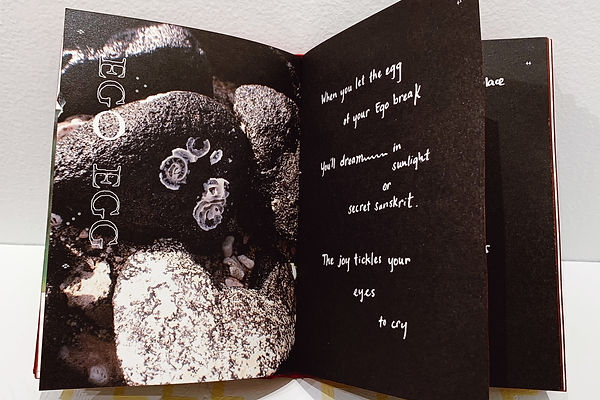 EGO EGG
When you let the egg
of your Ego break
you'll dream in
sunlight
or
secret sanskrit.
The joy tickles your
eyes
to cry